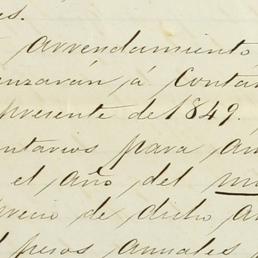 es.
arrendamiento
enzarán á contar
presente de 1849.
ntarios para am
el año del mi
precio de dicho ar
l pesos anuales